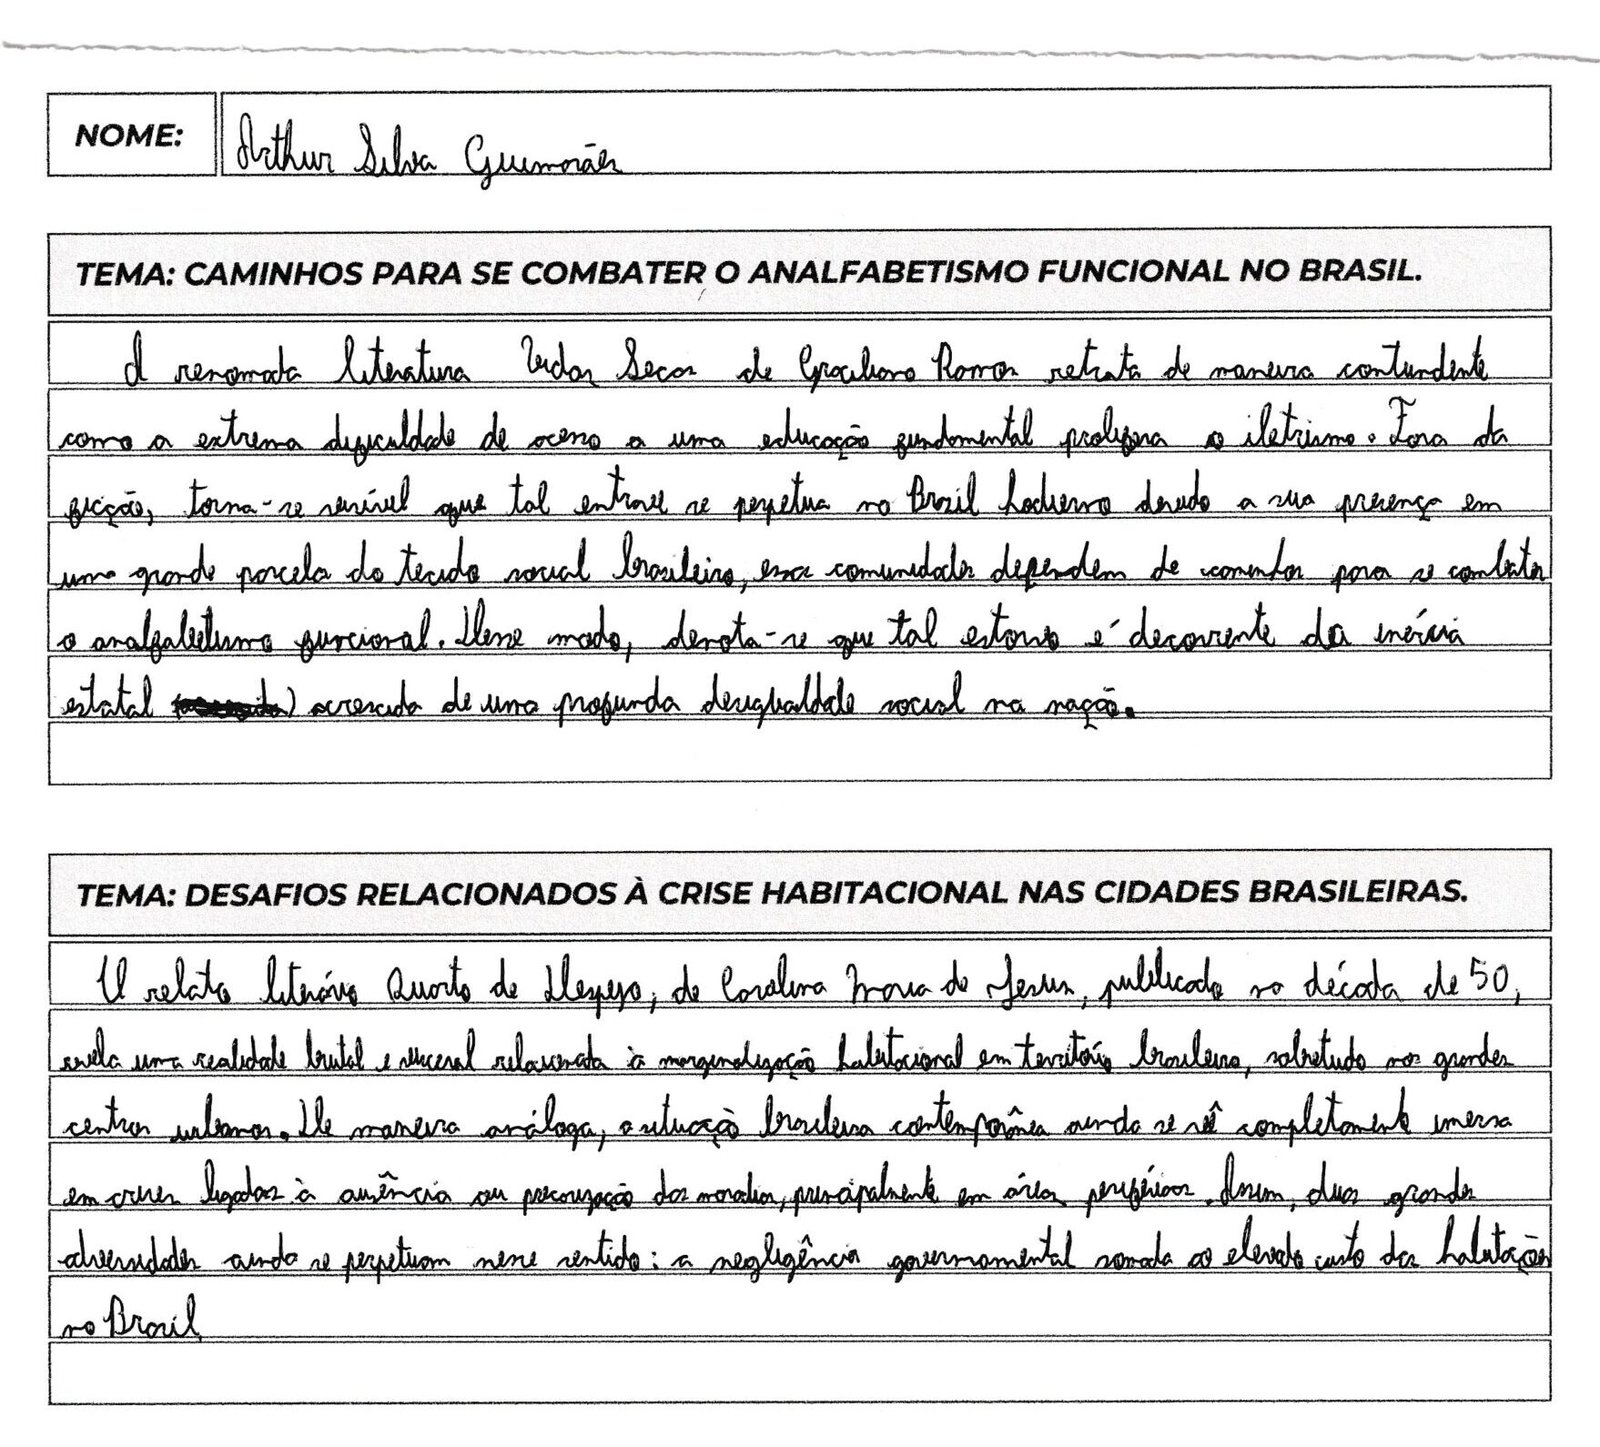 NOME: Arthur Silva Guimarães
TEMA: CAMINHOS PARA SE COMBATER O ANALFABETISMO FUNCIONAL NO BRASIL.
A renomada literatura Vidas Secas de Graciliano Ramos retrata de maneira contundente
como a extrema dificuldade de acesso a uma educação fundamental prolifera o iletrismo. Fora da
ficção, torna-se visível que tal entrave se perpetua no Brasil hodierno devido a sua presença em
uma grande parcela do tecido social brasileiro, essas comunidades dependem de para se combater
o analfabetismo funcional. Desse modo, denota-se que tal estorvo é decorrente da inércia
estatal acrescida de uma profunda desigualdade social na nação.
TEMA: DESAFIOS RELACIONADOS À CRISE HABITACIONAL NAS CIDADES BRASILEIRAS.
O relato literário Quarto de Despejo, de Carolina Maria de Jesus, publicado na década de 50,
revela uma realidade brutal e visceral relacionada à marginalização habitacional em território brasileiro, sobretudo nos grandes
centros urbanos. De maneira análoga, a situação brasileira contemporânea ainda se vê completamente imersa
em crises ligadas à ausência ou precarização das moradias, principalmente em áreas periféricas. Assim, duas grandes
adversidades ainda se perpetuam nesse sentido: a negligência governamental somada ao elevado custo das habitações
no Brasil